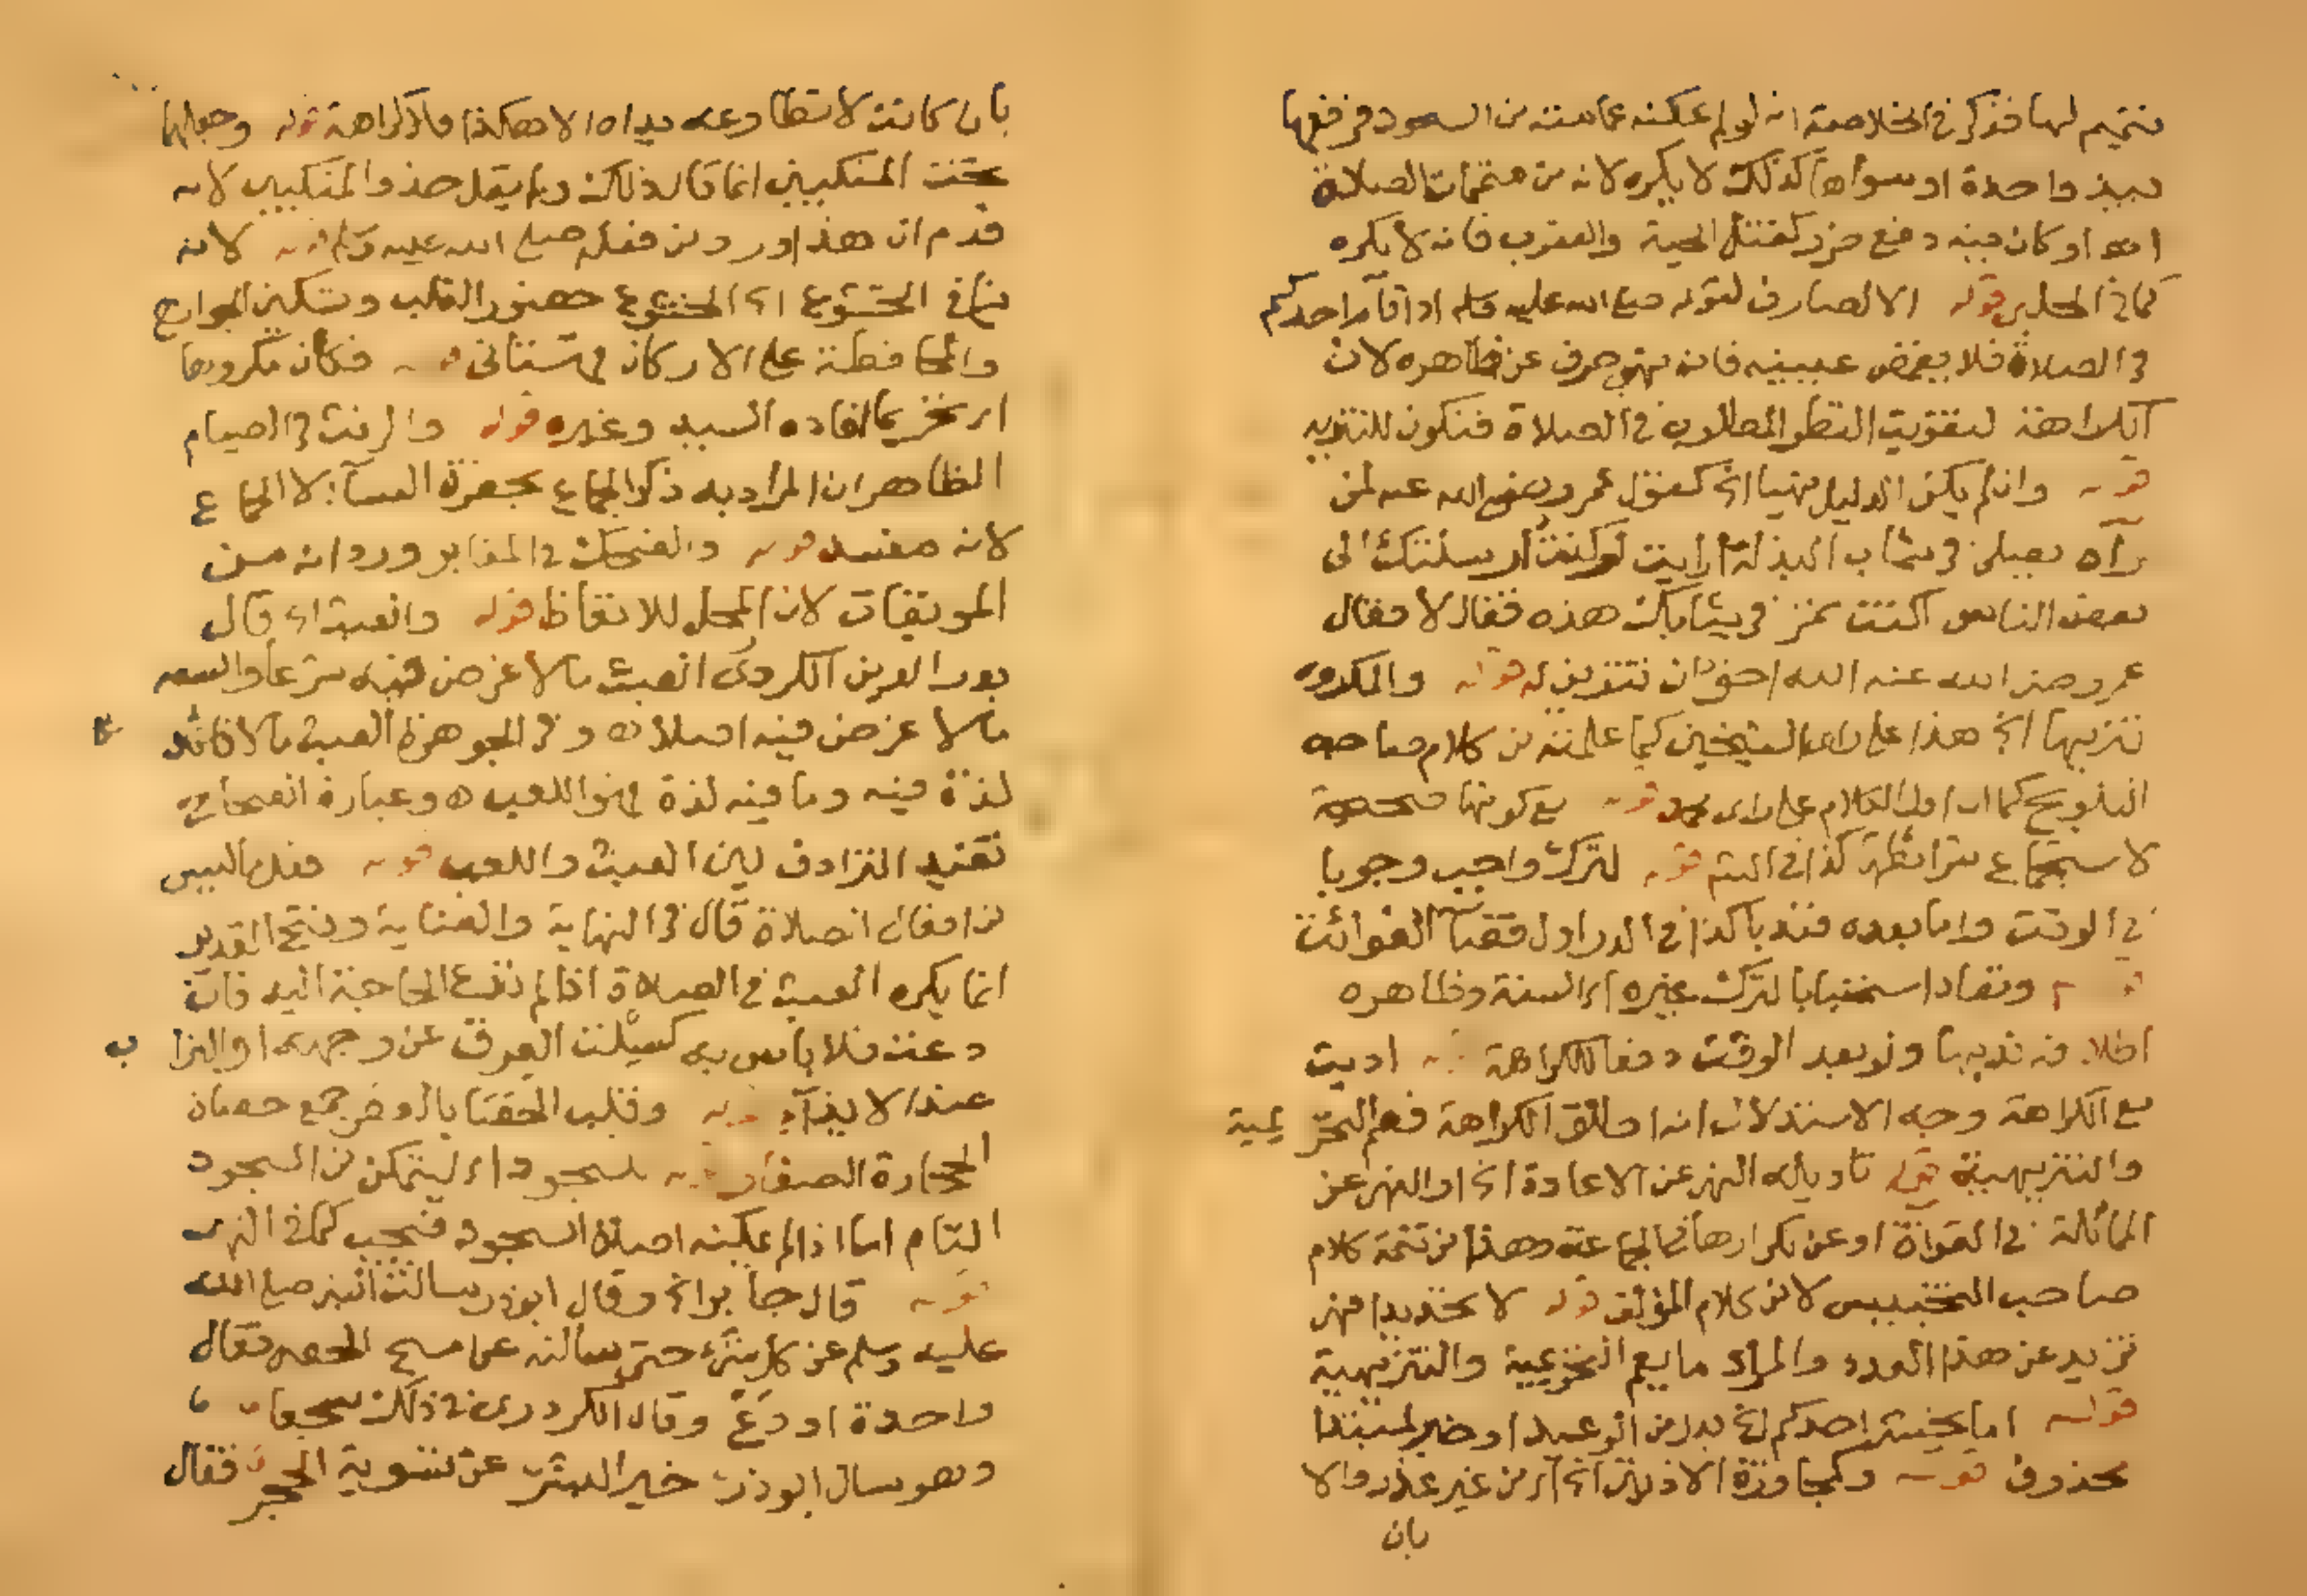 تتميم لها فذكر في الخلاصة انه لو لم تمكنه عمامته من السجود فرفعها
بيد واحدة او سواها كذلك لا يكره لانه من متممات الصلاة
اهـ او كان فيه دفع ضرر كقتل الحية والعقرب فانه لا يكره
كما في الحلبي قوله الا لصارف لقوله صلى الله عليه وسلم اذا قام احدكم
في الصلاة فلا يغمض عينيه فانه نهي صرف عن ظاهره لان
الكراهة لتفويت النظر المطلوب في الصلاة فتكون للتنزيه
قوله وان لم يكن الدليل نهيا اي كقول عمر رضي الله عنه لمن
رآه يصلي في ثياب البذلة ارايت لو كنت ارسلتك الى
بعض الناس اكنت تمر في ثيابك هذه فقال لا فقال
عمر رضي الله عنه الله احق ان تتزين له قوله والمكروه
تنزيها اي هذا على راي الشيخين كما علمته من كلام صاحب
التلويح كما ان اول الكلام على راي محمد قوله مع كونها صحيحة
لاستجماع شرائطها كذا في الشم قوله لترك واجب وجوبا
في الوقت واما بعده فندبا كذا في الدر اول قضاء الفوائت
قوله وتعاد استحبابا لترك غيره اي السنة وظاهره
اطلاقه ندبها ولو بعد الوقت دفعا للكراهة قوله اديت
مع الكراهة وجه الاستدلال انه اطلق الكراهة فعم التحريمية
والتنزيهية قوله تاويله النهي عن الاعادة اي او النهي عن
المماثلة في القراة او عن تكرارها في الجماعة وهذا من تتمة كلام
صاحب التجنيس لا من كلام المؤلف قوله لا تحديدا فهي
تزيد عن هذا العدد والمراد ما يعم التحريمية والتنزيهية
قوله اما يخشى احدكم اي بدا من الوعيد او خبر لمبتدا
محذوف قوله وكمجاوزة الاذنين اي من غير عذر والا
بان
بان كانت لا تطاوعه يداه الا هكذا فلا كراهة قوله وجعلهما
تحت المنكبين انما قال ذلك ولم يقل حذو المنكبين لانه
قدم ان هذا ورد من فعله صلى الله عليه وسلم قوله لانه
ينافي الخشوع اي الخشوع حضور القلب وتسكين الجوارح
والمحافظة على الاركان قهستاني قوله فكان مكروها
اي تحريما افاده السيد وغيره قوله والرفث في الصيام
الظاهر ان المراد به ذكر الجماع بحضرة النسآء لا الجماع
لانه مفسد قوله والضحك في المقابر ورد انه من
الموبقات لان المحل للاتعاظ قوله والعبث اي قال
بدر الدين الكردري العبث ما لا غرض فيه شرعا والسفه
ما لا غرض فيه اصلا اهـ وفي الجوهرة العبث ما لا فائدة
لذة فيه وما فيه لذة فهو اللعب اهـ وعبارة الصحاح
تفيد الترادف بين العبث واللعب قوله فعل ليس
من افعال الصلاة قال في النهاية والعناية وفتح القدير
انما يكره العبث في الصلاة اذا لم تدع الحاجة اليه فان
دعت فلا باس به كسلت العرق عن وجهه او التراب
عند الايذآء قوله وقلب الحصا بالقصر جمع حصاة
الحجارة الصغار قوله للسجود اي ليتمكن من السجود
التام اما اذا لم يمكنه اصل السجود فيجب كما في النهر
قوله قال جابر اي وقال ابوذر سالت النبي صلى الله
عليه وسلم عن كل شيء حتى سالته عن مسح الحصى فقال
واحدة او دع وقال الكردري في ذلك سجعا
وهو سال ابوذر خير البشر عن تسوية الحجر فقال